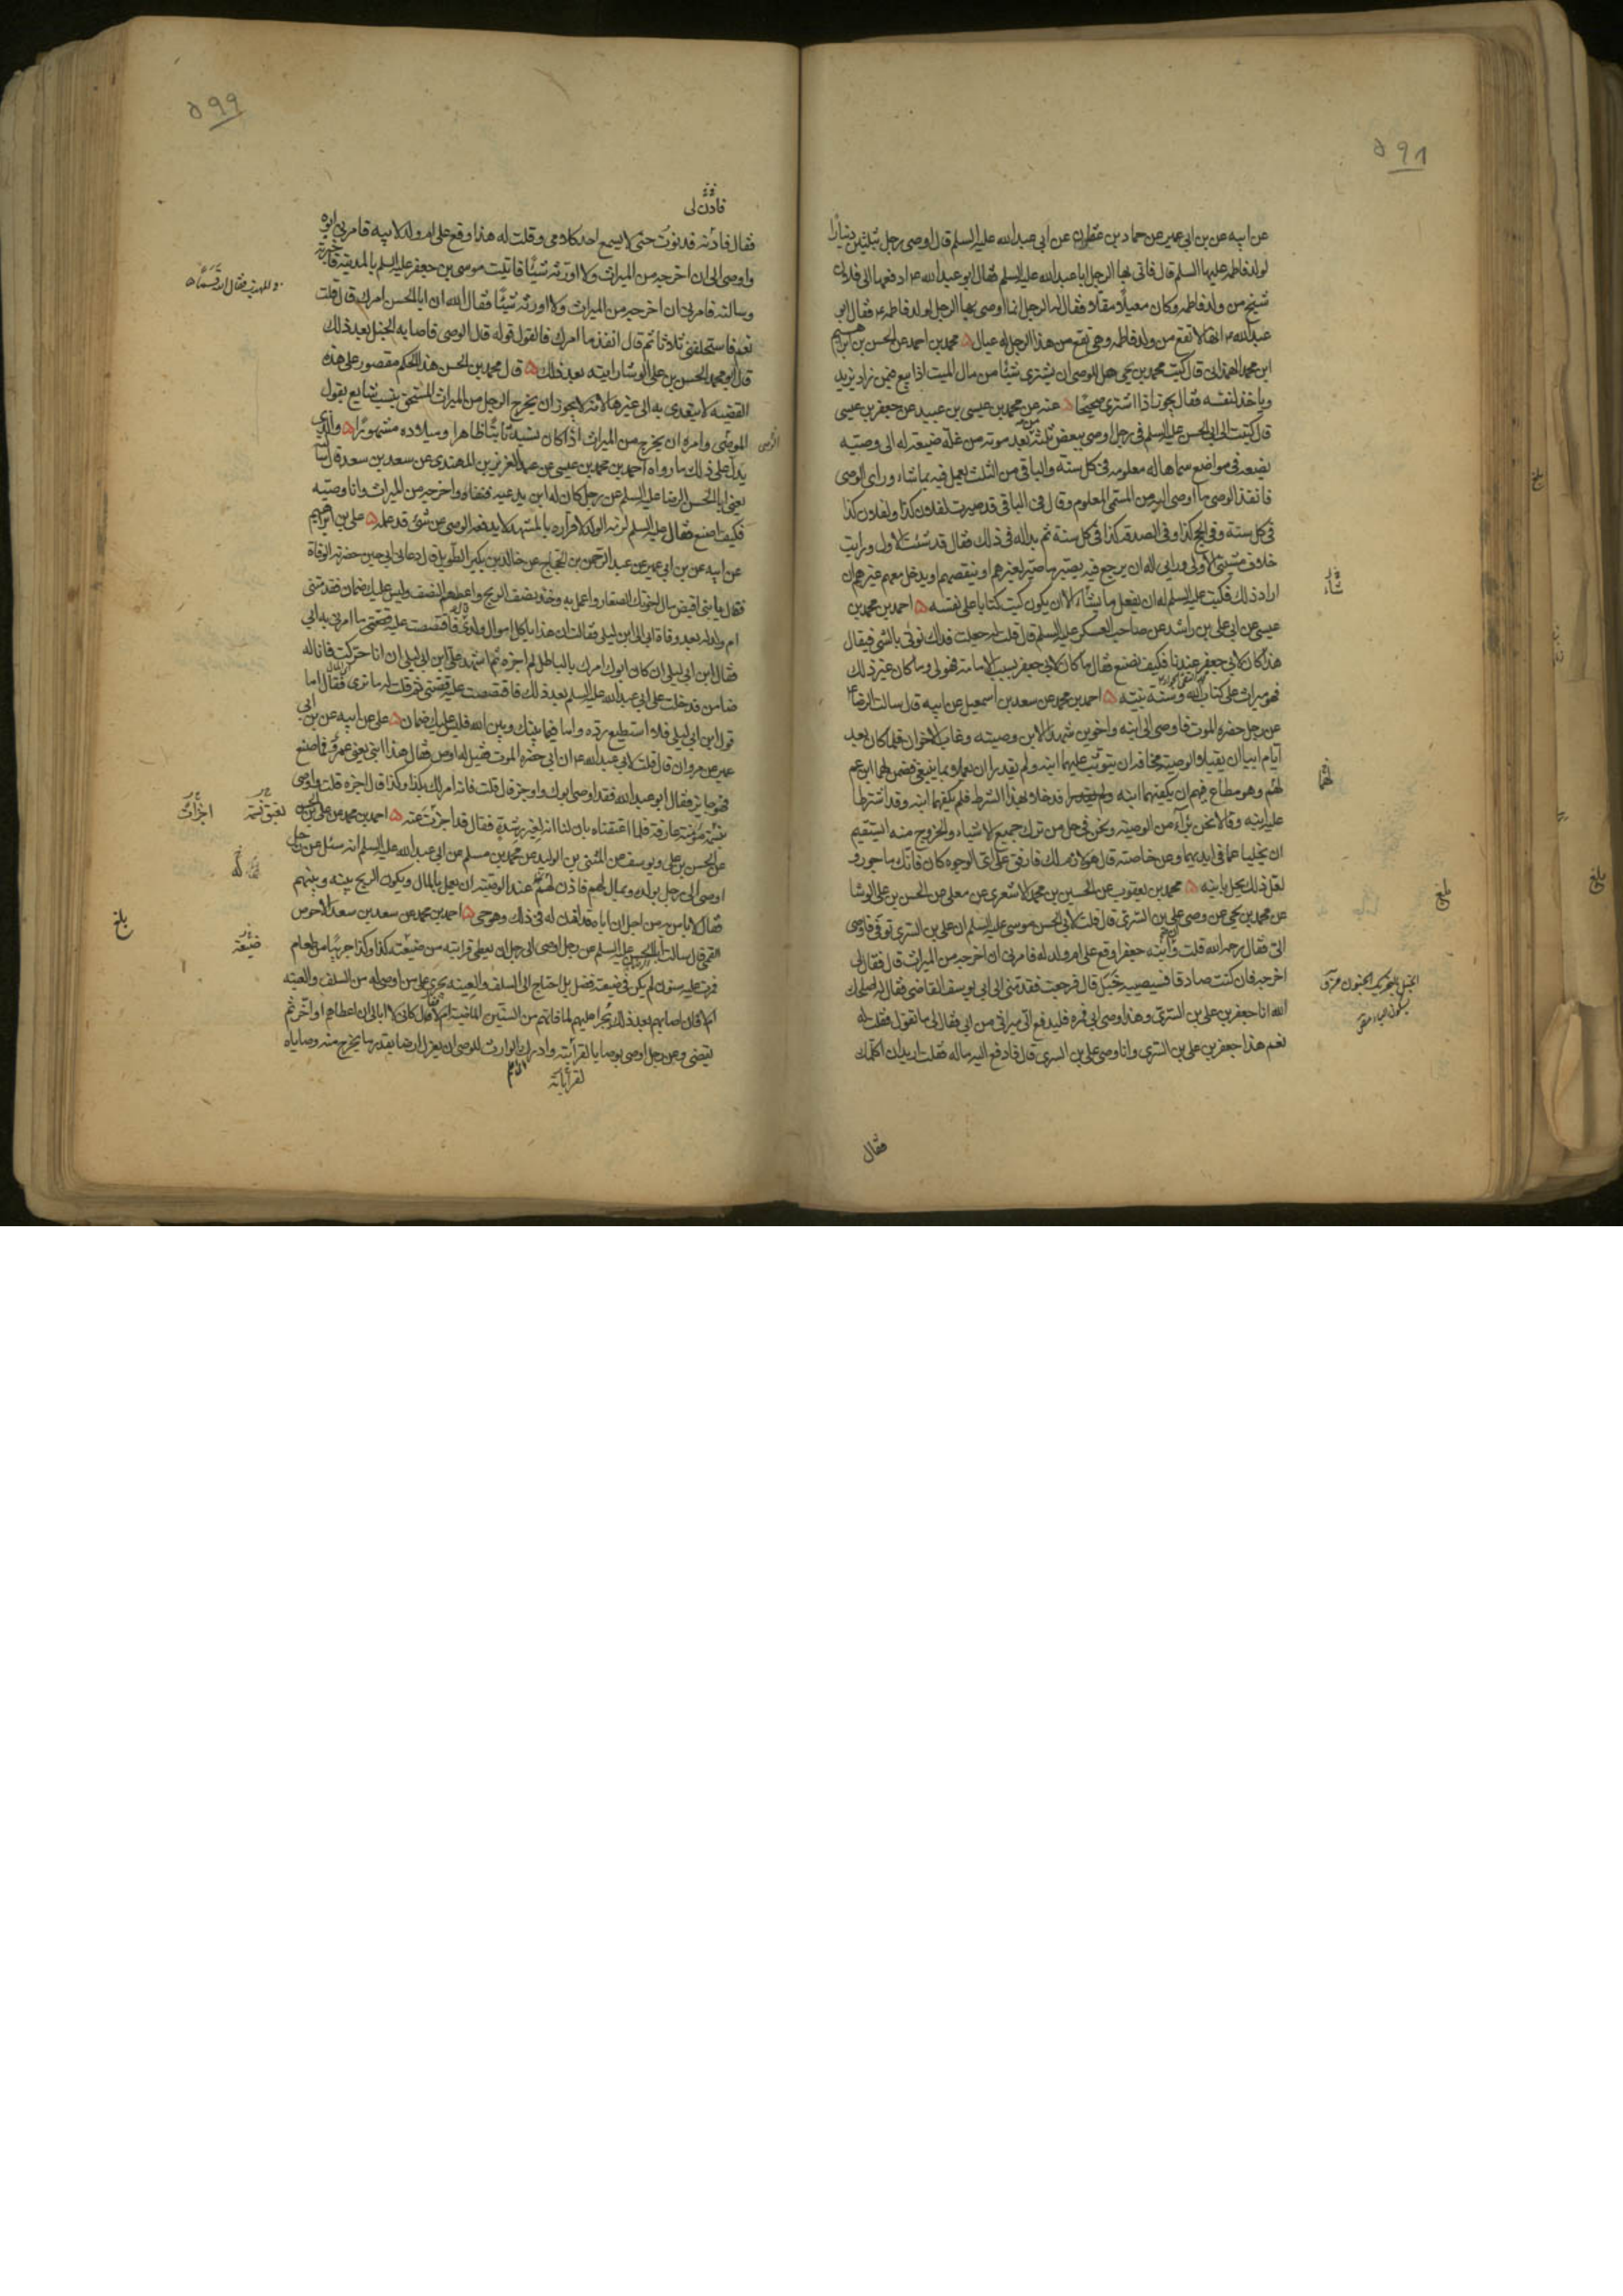 ٥٩٨
عن ابيه عن بن ابي عمير عن حماد بن عثمان عن ابي عبد الله عليه السلم قال اوصى رجل بثلثين دينارا
لولد فاطمه عليها السلم قال فاتى بها الرجل ابا عبد الله عليه السلم فقال ابو عبد الله ع ادفعها الى فلان
شيخ من ولد فاطمه وكان معيلا مقلا فقال له الرجل انما اوصى بها الرجل لولد فاطمه ع فقال ابو
عبد الله ع انها لا تقع من ولد فاطمه وهي تقع من هذا الرجل وله عيال ۵ محمد بن احمد عن الحسن بن ابراهيم
ابن محمد الهمذانى قال كتب محمد بن يحيى هل للوصى ان يشترى شيئا من مال الميت اذا بيع فيمن زاد يزيد
وياخذ لنفسه فقال يجوز اذا اشترى صحيحا ۵ عنه عن محمد بن عيسى بن عبيد عن جعفر بن عيسى
قال كتبت الى ابي الحسن عليه السلم في رجل اوصى ببعض ثلثه من بعد موته من غلة ضيعة له الى وصيه
يضعه في مواضع سماها له معلومه في كل سنة والباقى من الثلث يعمل فيه بما شاء وراى الوصى
فانفذ الوصى ما اوصى اليه من المسمى المعلوم وقال في الباقى قد صيرت لفلان كذا ولفلان كذا
في كل سنة وفي الحج كذا وفي الصدقه كذا في كل سنة ثم بدا له في ذلك فقال قد شئت الاول ورايت
خلاف مشيتى الاولى ورايى اله ان يرجع فيه يصير ما صير لغيرهم او ينقصهم او يدخل معهم غيرهم ان
اراد ذلك فكتب عليه السلم له ان يفعل ما يشاء الا ان يكون كتب كتابا على نفسه ۵ احمد بن محمد بن
عيسى عن ابي على بن راشد عن صاحب العسكر عليه السلم قال قلت له جعلت فداك نوتى بالشئ فيقال
هذا كان لابي جعفر عندنا فكيف نصنع فقال ما كان لابي جعفر بسبب الامامة فهو لى وما كان غير ذلك
فهو ميراث على كتاب الله وسنة نبيه ۵ احمد بن محمد عن سعد بن اسمعيل عن ابيه قال سالت الرضا ع
عن رجل حضره الموت فاوصى الى ابنه واخوين شهد الابن وصيته وغاب الاخوان فلما كان بعد
ايام ابيا ان يقبلا الوصية مخافة ان يتوثب عليهما ابنه ولم يقدر ان يعملا بما ينبغى فضمن لهما ابن عم
لهم وهو مطاع فيهم ان يكفيهما ابنه فدخلا بهذا الشرط فلم يكفهما ابنه وقد اشترطا
عليه ابنه وقالا نحن برآء من الوصية ونحن في حل من ترك جميع الاشياء والخروج منه ايستقيم
ان يخليا عما في ايديهما وعن خاصته قال هو لازم لك فارفق على اى الوجوه كان فانك ماجور و
لعل ذلك يحل بابنه ۵ محمد بن يعقوب عن الحسين بن محمد الاشعرى عن معلى عن الحسن بن على الوشا
عن محمد بن يحيى عن وصى على بن السرى قال قلت لابي الحسن موسى عليه السلم ان على بن السرى توفى فاوصى
الى فقال رحمه الله قلت وان ابنه جعفرا وقع على ام ولد له فامرنى ان اخرجه من الميراث قال فقال لى
اخرجه فان كنت صادقا فسيصيبه خبل قال فرجعت فقدمنى الى ابي يوسف القاضى فقال له اصلحك
الله انا جعفر بن على بن السرى وهذا وصى ابي فمره فليدفع الى ميراثى من ابي فقال لى ما تقول فقلت له
نعم هذا جعفر بن على بن السرى وانا وصى على بن السرى قال فادفع اليه ماله فقلت اريد ان اكلمك
فقال
شاء
لهما
بلغ
٥٩٩
فادن لى
فقال فادنه فدنوت حتى لا يسمع احد كلامى وقلت له هذا وقع على ام ولد لابيه فامرنى ابوه
واوصى الى ان اخرجه من الميراث ولا اورثه شيئا فاتيت موسى بن جعفر عليه السلم بالمدينة فاخبرته
وسالته فامرنى ان اخرجه من الميراث ولا اورثه شيئا فقال الله ان ابا الحسن امرك قال قلت
نعم فاستحلفنى ثلاثا ثم قال انفذ ما امرك فالقول قوله قال الوصى فاصابه الخبل بعد ذلك
قال ابو محمد الحسن بن على الوشا رايته بعد ذلك ۵ قال محمد بن الحسن هذا الحكم مقصور على هذه
القضيه لا يتعدى به الى غيرها لانه لا يجوز ان يخرج الرجل من الميراث المستحق بنسب شايع بقول
الموصى وامره ان يخرج من الميراث اذا كان نسبه ثابتا ظاهرا وميلاده مشهورا ۵ والذى
يدل على ذلك ما رواه احمد بن محمد بن عيسى عن عبد العزيز بن المهتدى عن سعد بن سعد قال سالته
يعنى ابا الحسن الرضا عليه السلم عن رجل كان له ابن يدعيه فنفاه واخرجه من الميراث وانا وصيه
فكيف اصنع فقال عليه السلم لزمه الولد لاقراره بالمشهد لا يدفعه الوصى عن شئ قد علمه ۵ على بن ابراهيم
عن ابيه عن بن ابي عمير عن عبد الرحمن بن الحجاج عن خالد بن بكير الطويل قال دعانى ابي حين حضرته الوفاة
فقال يا بنى اقبض مال اخوتك الصغار واعمل به وخذ نصف الربح واعطهم النصف وليس عليك ضمان فقدمتنى
ام ولد له بعد وفاة ابي الى ابن ابي ليلى فقالت ان هذا ياكل اموال ولدى فاقتصصت عليه قصتى ما امرنى به ابي
فقال ابن ابي ليلى ان كان ابوك امرك بالباطل لم اجزه ثم اشهد على ابن ابي ليلى ان انا حركته فانا له
ضامن فدخلت على ابي عبد الله عليه السلم بعد ذلك فاقتصصت عليه قصتى ثم قلت له ما ترى فقال اما
قول ابن ابي ليلى فلا استطيع رده واما فيما بينك وبين الله فليس عليك ضمان ۵ على عن ابيه عن بن ابي
عمير عن مروان قال قلت لابي عبد الله ع ان ابي حضره الموت فقيل له اوص فقال هذا ابنى يعنى عمر فما صنع
فهو جايز فقال ابو عبد الله فقد اوصى ابوك واوجز قال قلت فانه امر لك بكذا وكذا قال اجزه قلت واوصى
بنسمة مؤمنة عارفة فلما اعتقناه بان لنا انه لغير رشدة فقال قد اجزءت عنه ۵ احمد بن محمد عن على بن الحسن
عن الحسن بن على بن يوسف عن المثنى بن الوليد عن محمد بن مسلم عن ابي عبد الله عليه السلم انه سئل عن رجل
اوصى الى رجل بولده وبمال لهم فاذن له عند الوصية ان يعمل بالمال ويكون الربح بينه وبينهم
فقال لا باس به من اجل ان اباه قد اذن له في ذلك وهو حى ۵ احمد بن محمد عن سعد بن سعد الاحوص
القمى قال سالت ابا الحسن عليه السلم عن رجل اوصى الى رجل ان يعطى قرابته من ضيعته كذا وكذا جريبا من طعام
فمرت عليه سنون لم يكن في ضيعته فضل بل احتاج الى السلف والعينه يجرى على من اوصى له من السلف والعينه
ام لا فان اصابهم بعد ذلك يجرا عليهم لما فاتهم من السنين الماضية ام لا فقال كانى لا ابالى ان اعطاهم او اخر ثم
يقضى وعن رجل اوصى بوصايا لقرابته وادرك الوارث للوصى ان يعزل ارضا بقدر ما يخرج منه وصاياه
لقراباته
بلغ
ضيعة